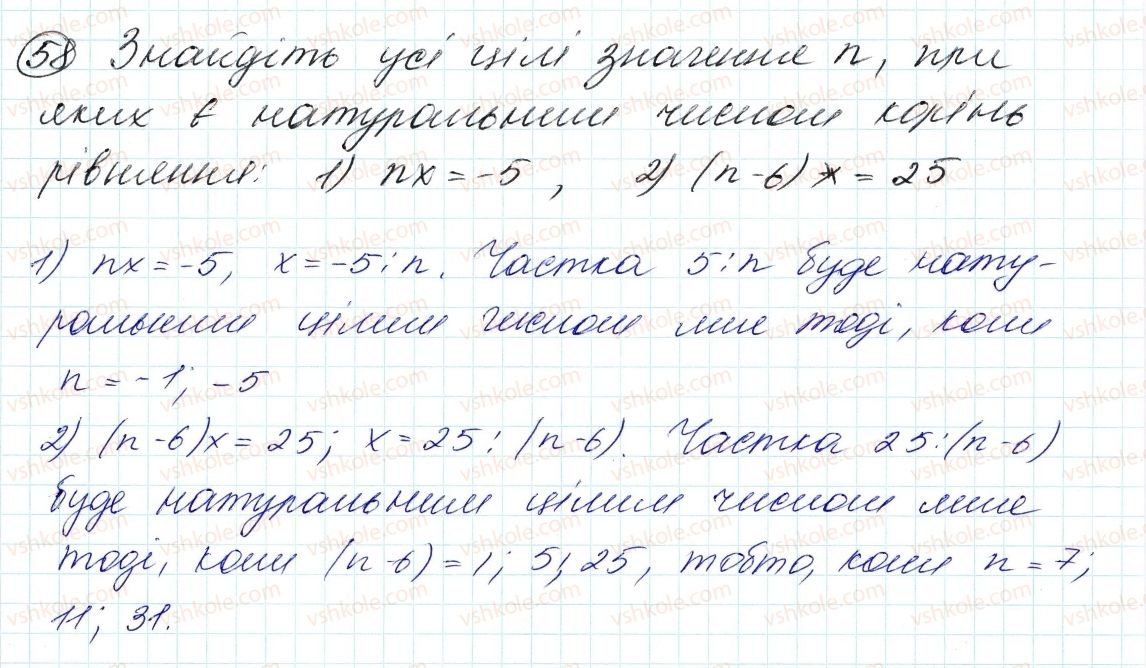 58 Знайдіть усі цілі значення n, при
яких є натуральним числом корінь
рівняння: 1) nx = -5, 2) (n-6)x = 25
1) nx = -5, x = -5 : n. Частка 5 : n буде нату-
ральним цілим числом лише тоді, коли
n = -1; -5
2) (n-6)x = 25; x = 25 : (n-6). Частка 25 : (n-6)
буде натуральним цілим числом лише
тоді, коли (n-6) = 1; 5; 25, тобто, коли n = 7;
11; 31.